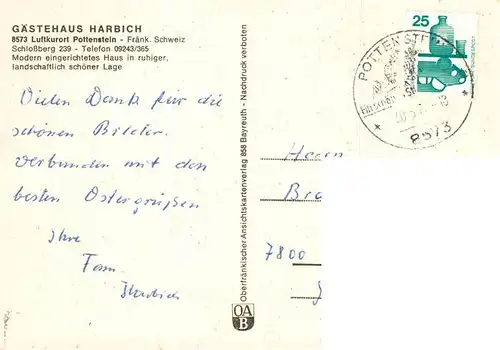 GÄSTEHAUS HARBICH
8573 Luftkurort Pottenstein - Fränk. Schweiz
Schloßberg 239 - Telefon 09243/365
Modern eingerichtetes Haus in ruhiger,
landschaftlich schöner Lage
Vielen Dank für die
schönen Bilder.
Verbunden mit den
besten Ostergrüßen
Ihre
Fam.
Harbich
Oberfränkischer Ansichtskartenverlag 858 Bayreuth - Nachdruck verboten
OA
B
25
POTTENSTE
8573
Herrn
Br
7800